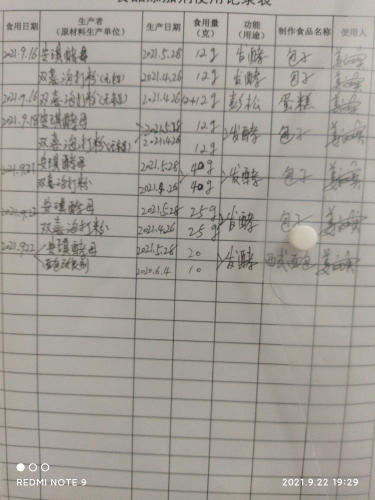 食用日期 生产者（原材料生产单位） 生产日期 食用量（克） 功能（用途） 制作食品名称 使用人
2021.9.16 安琪酵母 2021.5.28 12g 发酵 包子
双喜泡打粉(无铝) 2021.4.26 12g 发酵 包子
2021.9.16 双喜泡打粉(无铝) 2021.4.26 12g 彭松 蛋糕
2021.9.18 安琪酵母 2021.5.28 12g 发酵 包子
双喜泡打粉(无铝) 2021.4.26 12g
2021.9.21 安琪酵母 2021.5.28 40g 发酵 包子
双喜泡打粉 2021.4.26 40g
安琪酵母 2021.5.28 25g 发酵 包子
双喜泡打粉 2021.4.26 25g
2021.9.22 安琪酵母 2021.5.28 20 发酵 西式面包
2020.6.4 10
REDMI NOTE 9
2021.9.22 19:29